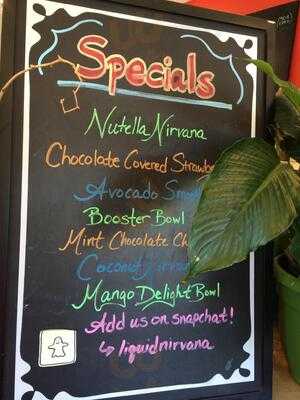 Specials
Nutella Nirvana
Chocolate Covered
Avocado
Booster Bowl
Mint Chocolate
Coconut
Mango Delight Bowl
Add us on snapchat!
↳ liquidnirvana